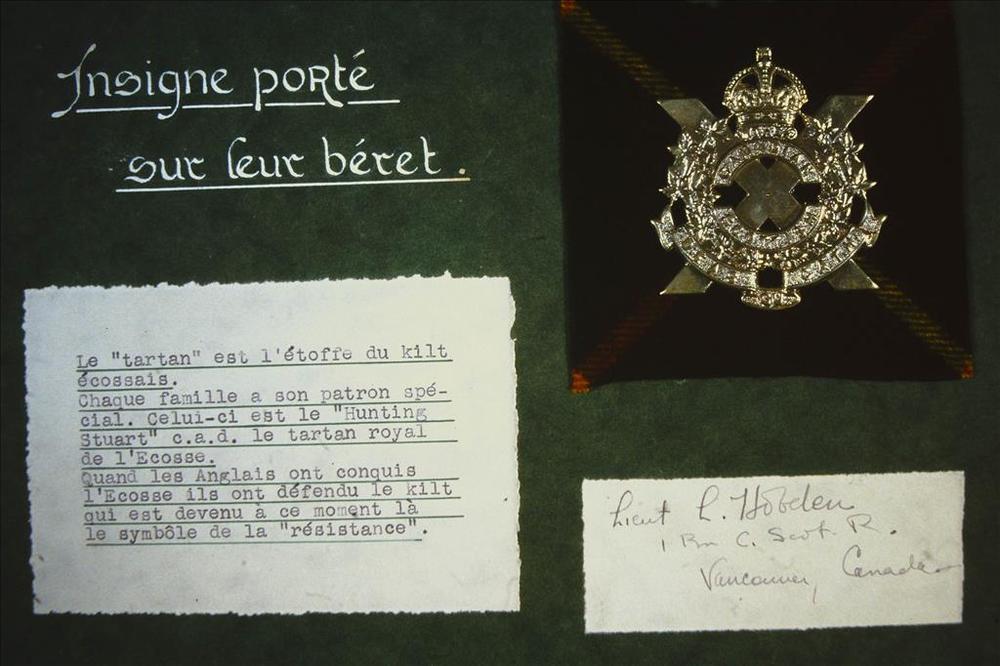 Insigne porté
sur leur béret.
Le "tartan" est l'étoffe du kilt
écossais.
Chaque famille a son patron spé-
cial. Celui-ci est le "Hunting
Stuart" c.a.d. le tartan royal
de l'Ecosse.
Quand les Anglais ont conquis
l'Ecosse ils ont défendu le kilt
qui est devenu à ce moment là
le symbôle de la "résistance".
Lieut L. Hobden
1 Bn C. Scot. R.
Vancouver, Canada